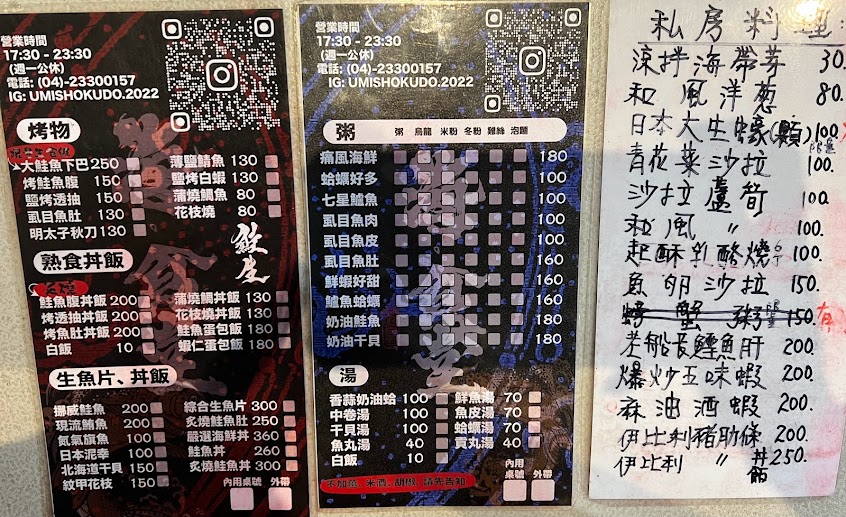 營業時間
17:30 - 23:30
(週一公休)
電話: (04)-23300157
IG: UMISHOKUDO.2022
烤物
大鮭魚下巴 250
烤鮭魚腹 150
鹽烤透抽 150
虱目魚肚 130
明太子秋刀 130
薄鹽鯖魚 130
鹽烤白蝦 130
蒲燒鯛魚 80
花枝燒 80
飲屋
熟食丼飯
鮭魚腹丼飯 200
烤透抽丼飯 200
烤魚肚丼飯 200
白飯 10
蒲燒鯛丼飯 130
花枝燒丼飯 130
鮭魚蛋包飯 180
蝦仁蛋包飯 180
生魚片、丼飯
挪威鮭魚 200
現流鮪魚 200
氮氣旗魚 100
日本泥幸 100
北海道干貝 150
紋甲花枝 150
綜合生魚片 300
炙燒鮭魚肚 250
嚴選海鮮丼 360
鮭魚丼 260
炙燒鮭魚丼 300
內用桌號 外帶
營業時間
17:30 - 23:30
(週一公休)
電話: (04)-23300157
IG: UMISHOKUDO.2022
粥 粥 烏龍 米粉 冬粉 雞絲 泡麵
痛風海鮮 180
蛤蠣好多 100
七星鱸魚 100
虱目魚肉 100
虱目魚皮 100
虱目魚肚 160
鮮蝦好甜 160
鱸魚蛤蠣 160
奶油鮭魚 180
奶油干貝 180
湯
香蒜奶油蛤 100
中卷湯 100
干貝湯 100
魚丸湯 40
白飯 10
鮮魚湯 70
魚皮湯 70
蛤蠣湯 70
貢丸湯 40
不加蔥、米酒、胡椒、請先告知
內用桌號 外帶
私房料理:
涼拌海帶芽 30.
和風洋蔥 80.
日本大生蠔(顆) 100.
青花菜沙拉 100.
沙拉蘆筍 100.
和風 〃 100.
起酥乳酪燒 100.
魚卵沙拉 150.
螃蟹粥 150. 有
老船長鱈魚肝 200.
爆炒五味蝦 200.
麻油酒蝦 200.
伊比利豬肋條 200.
伊比利 〃 丼飯 250.